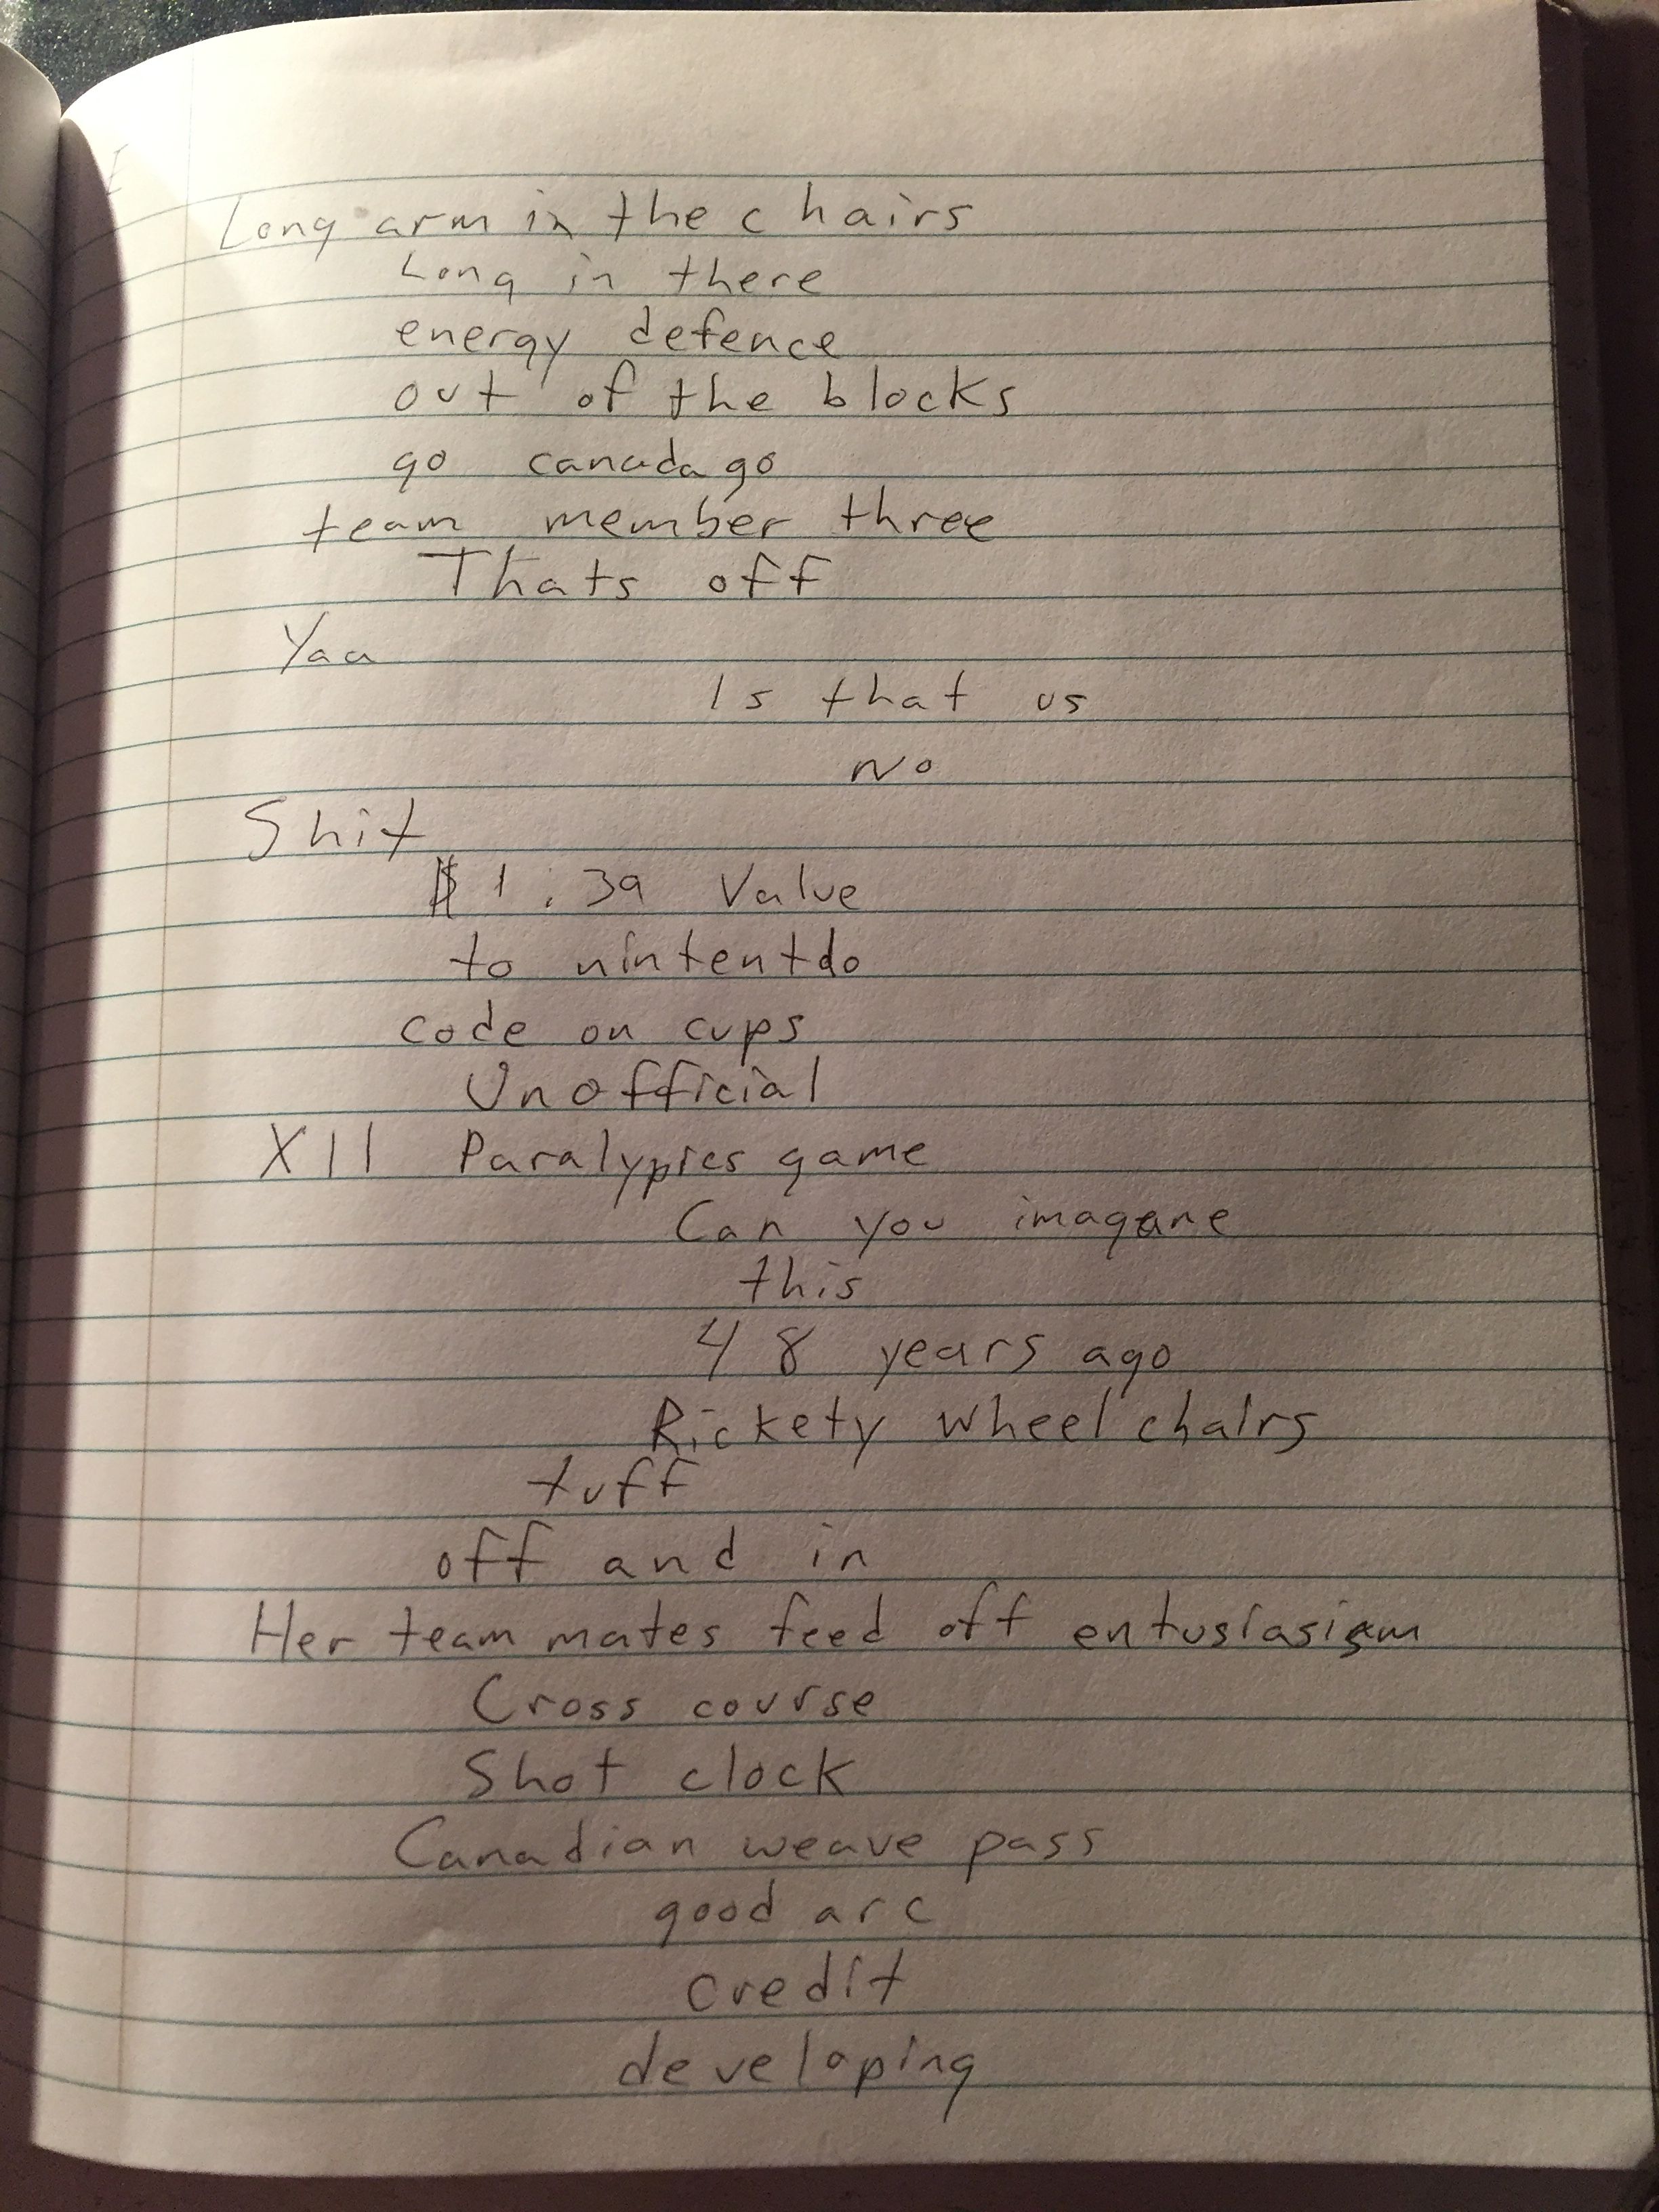 Long arm in the chairs
Long in there
energy defence
out of the blocks
go canada go
team member three
Thats off
Yaa
Is that us
No
Shit
$1.39 Value
to nintentdo
code on cups
Unofficial
XII Paralypics game
Can you imagane
this
48 years ago
Rickety wheel chairs
tuff
off and in
Her team mates feed off entusiasism
Cross course
Shot clock
Canadian weave pass
good arc
credit
developing